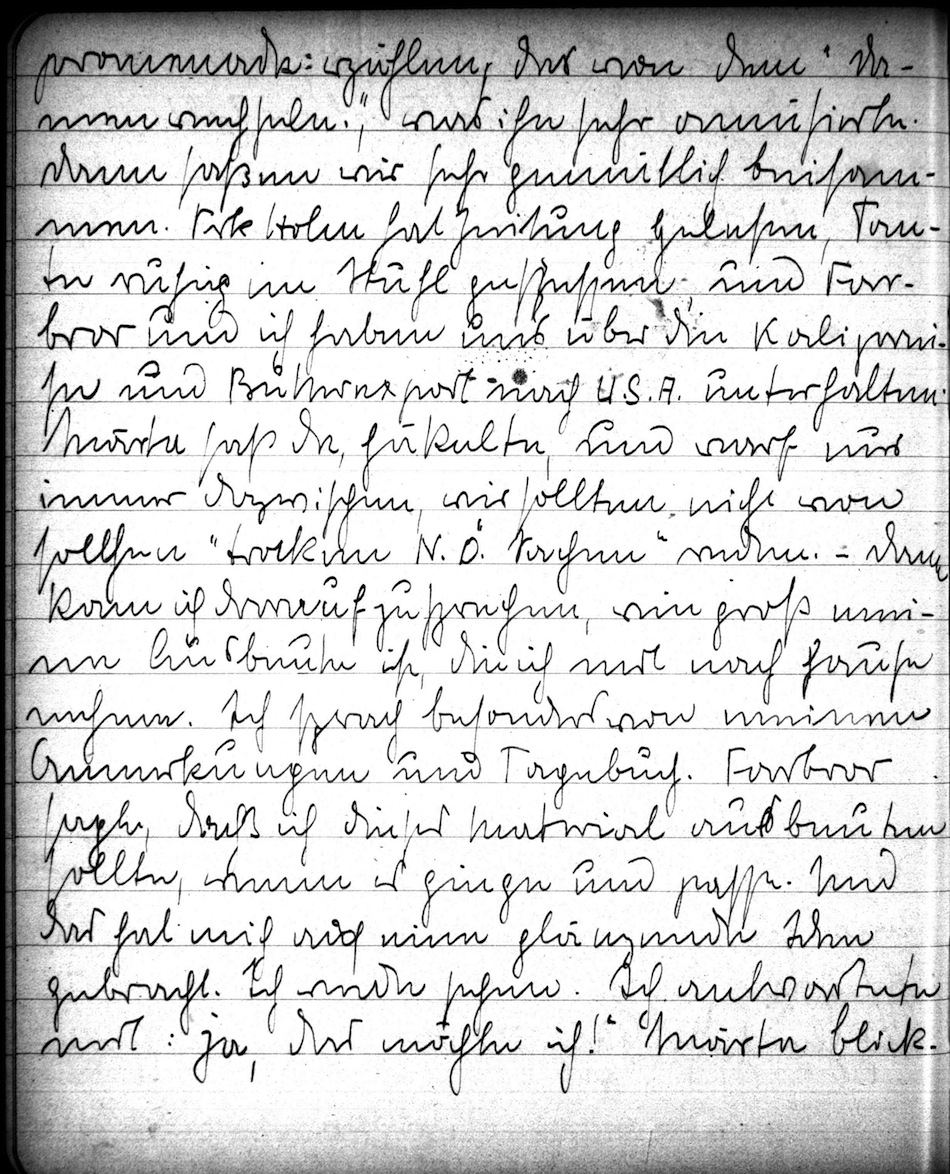 promenade: erzählen, das von dem "Da-
men wechseln.", was ihn sehr amüsierte.
Dann saßen wir sehr gemütlich beisam-
men. Frk Holm hat Zeitung gelesen, Tan-
te ruhig im Stuhl gesessen und Far-
bror und ich haben uns über die Kaliprei-
se und Butterexport nach U.S.A. unterhalten.
Märta saß da, häkelte, und warf uns
immer dazwischen, wir sollten nicht von
sollchen "trocknen N.Ö. Sachen" reden. - Dann
kam ich darauf zu sprechen, wie groß mei-
ne Ausbeute ist, die ich mit nach Hause
nehme. Ich sprach besonders von meinen
Anmerkungen und Tagebuch. Farbror
sagte, daß ich dieses Material ausbeuten
sollte, wenn es ginge und passe. Und
das hat mich auf eine glänzende Idee
gebracht. Ich werde sehen. Ich antwortete
mit: ja, das möchte ich!" Märta blick-